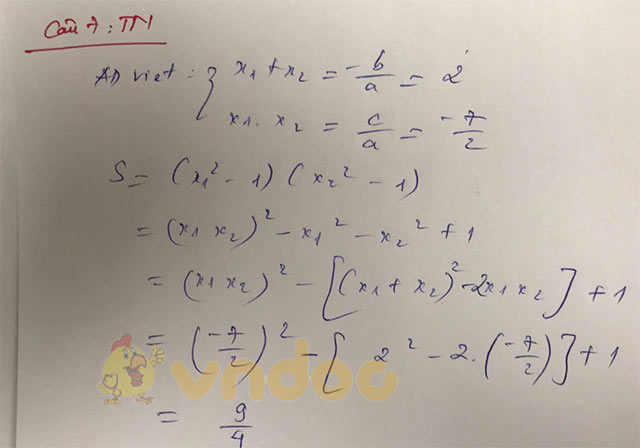 Câu 7: TN
AD viet: { x₁ + x₂ = -b/a = 2
x₁. x₂ = c/a = -7/2
S = (x₁² - 1) (x₂² - 1)
= (x₁ x₂)² - x₁² - x₂² + 1
= (x₁ x₂)² - [(x₁ + x₂)² - 2x₁ x₂] + 1
= (-7/2)² - [2² - 2.(-7/2)] + 1
vndoc
= 9/4